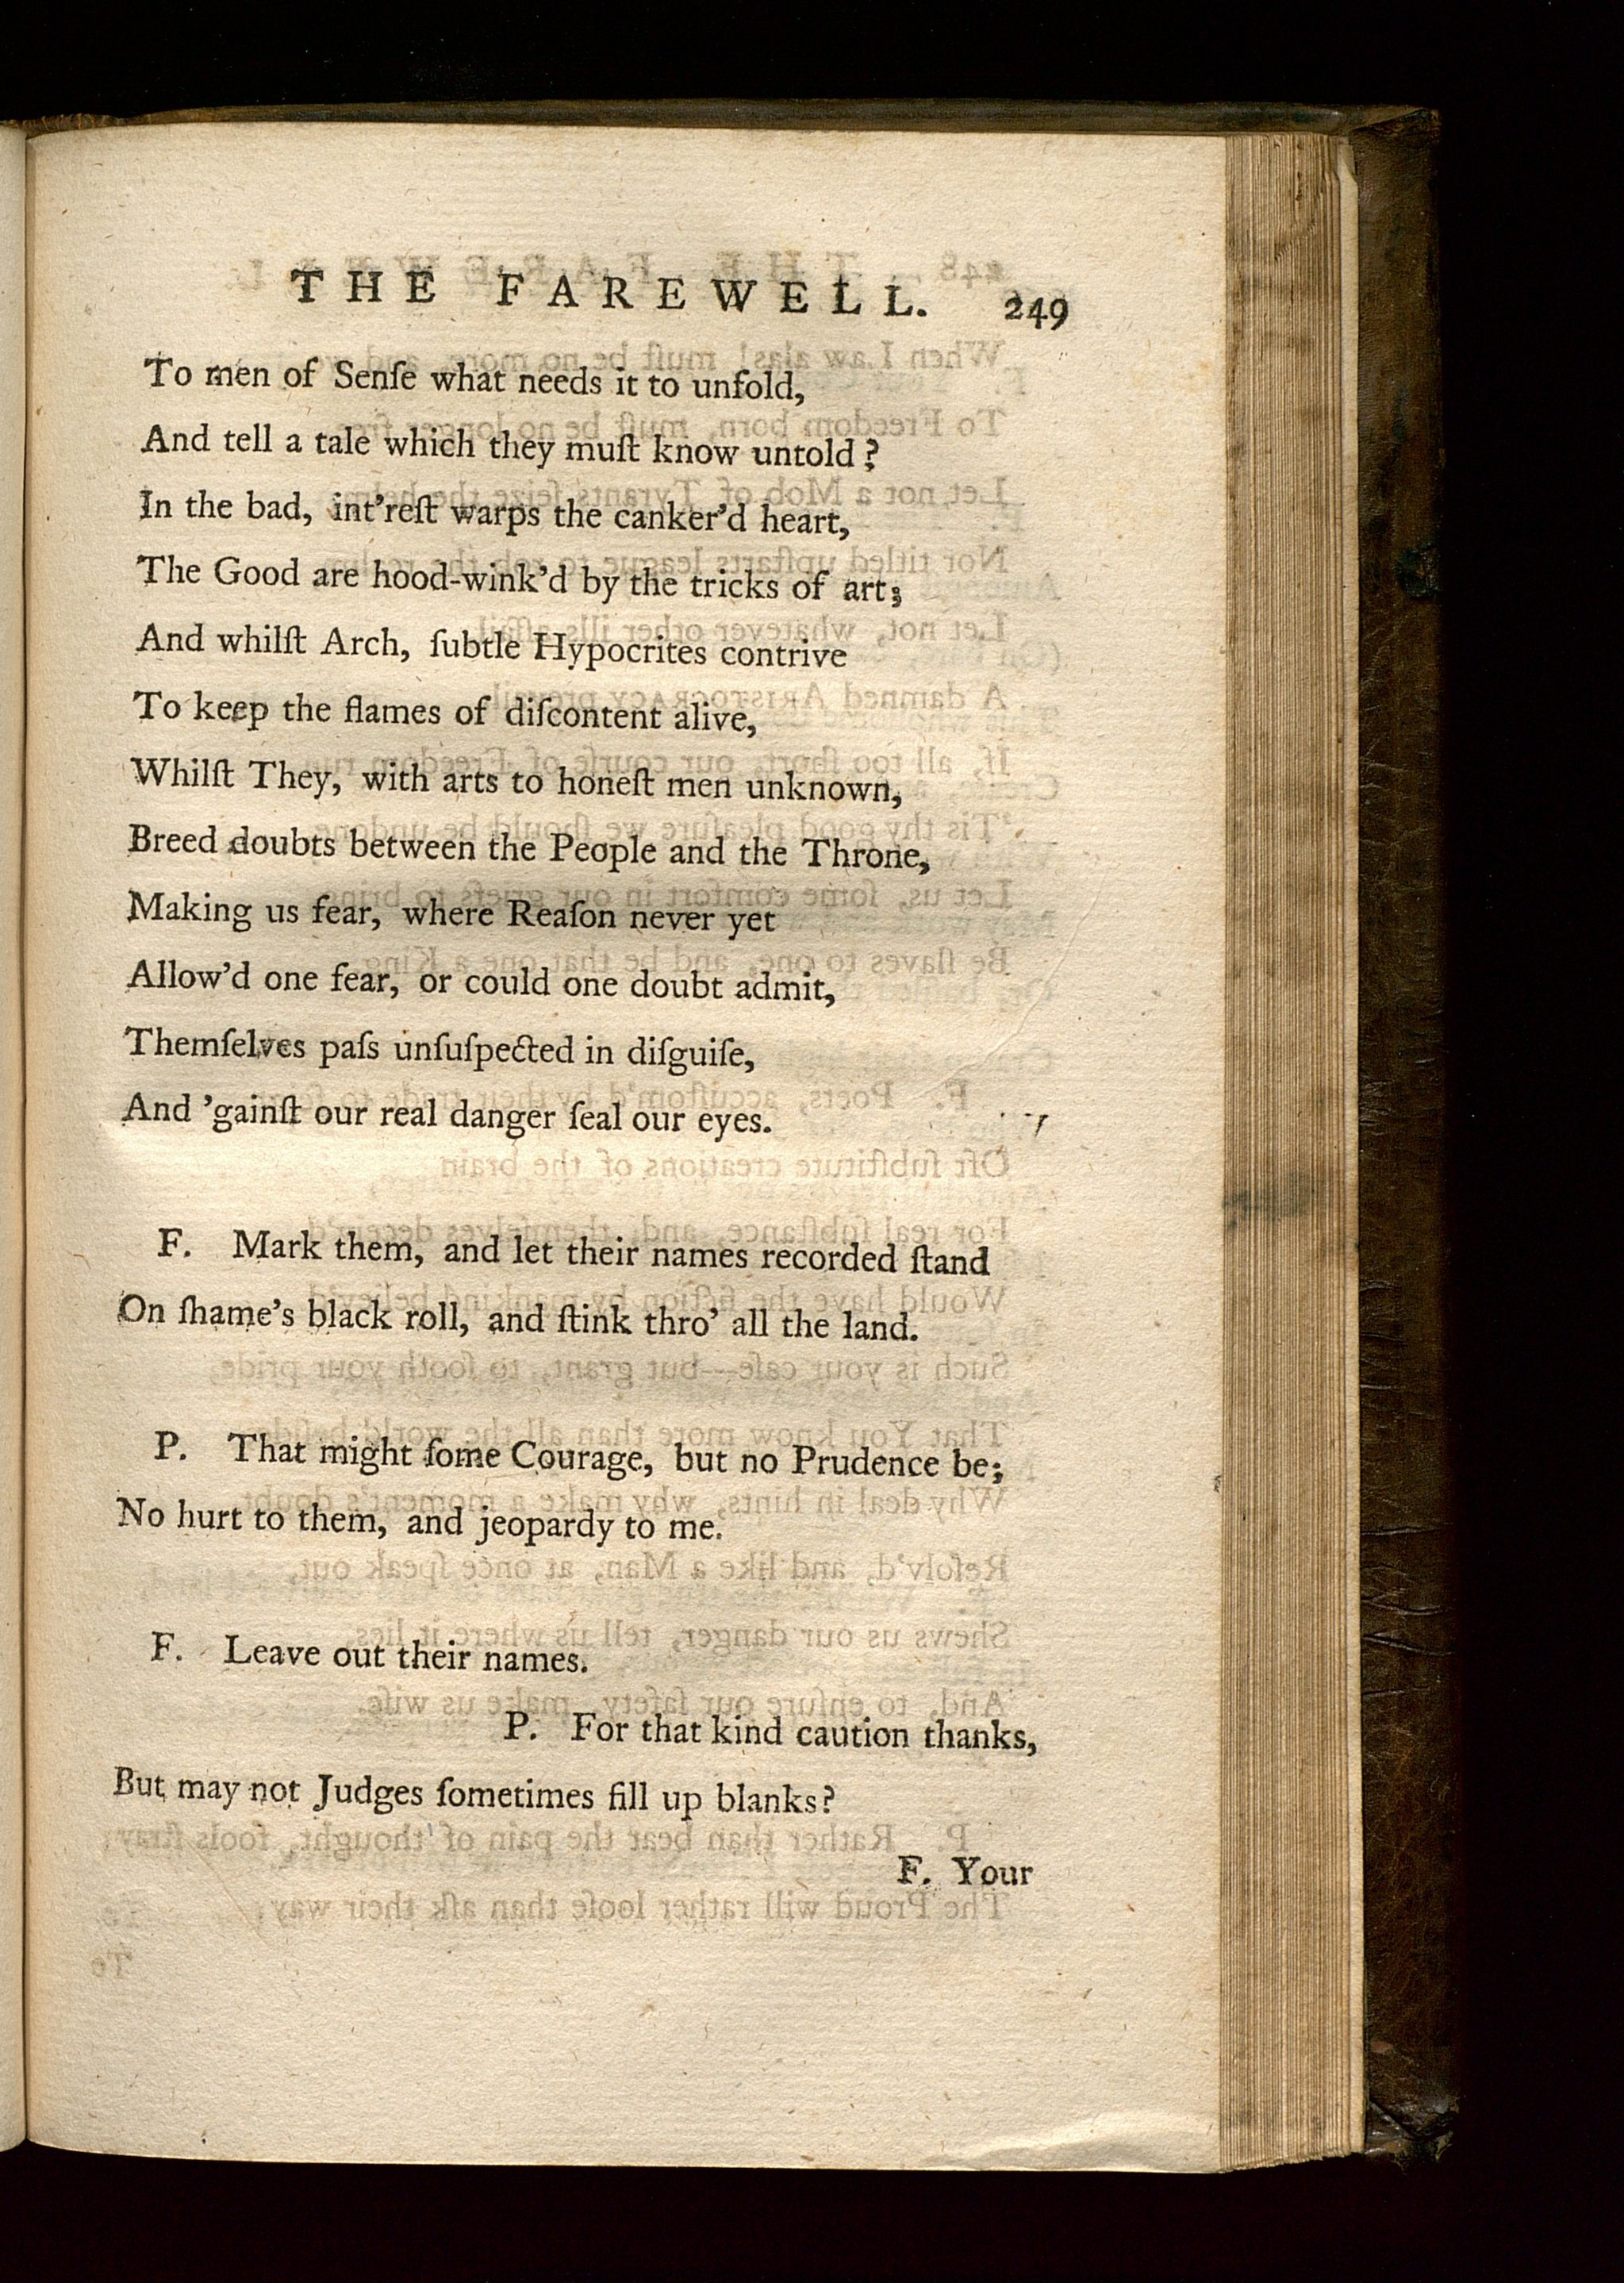 THE FAREWELL. 249
To men of Senſe what needs it to unfold,
And tell a tale which they muſt know untold?
In the bad, int'reſt warps the canker'd heart,
The Good are hood-wink'd by the tricks of art;
And whilſt Arch, ſubtle Hypocrites contrive
To keep the flames of diſcontent alive,
Whilſt They, with arts to honeſt men unknown,
Breed doubts between the People and the Throne,
Making us fear, where Reaſon never yet
Allow'd one fear, or could one doubt admit,
Themſelves paſs unſuſpected in diſguiſe,
And 'gainſt our real danger ſeal our eyes.
F. Mark them, and let their names recorded ſtand
On ſhame's black roll, and ſtink thro' all the land.
P. That might ſome Courage, but no Prudence be;
No hurt to them, and jeopardy to me.
F. Leave out their names.
P. For that kind caution thanks,
But may not Judges ſometimes fill up blanks?
F. Your